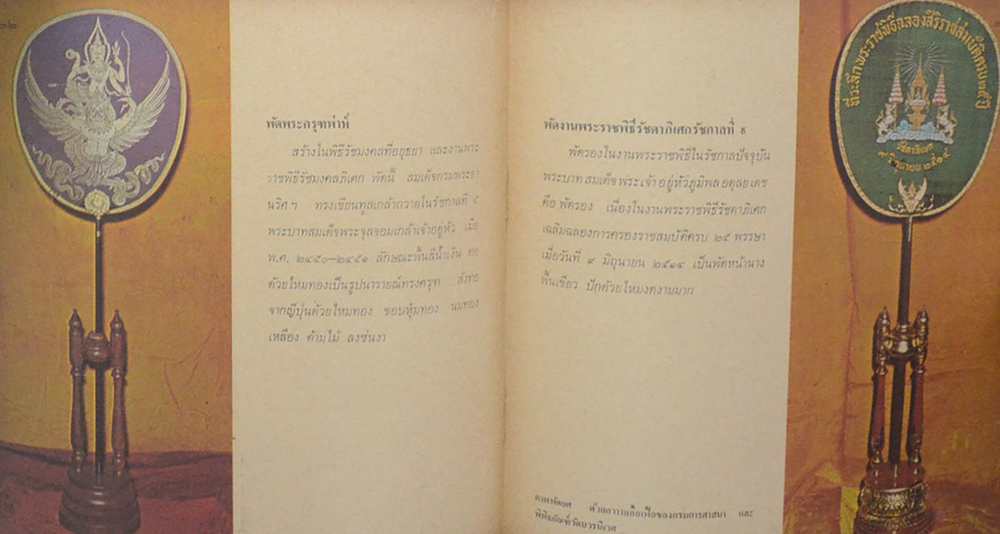 ๓๒
พัดพระครุฑพ่าห์
สร้างในพิธีรัชมงคลที่อยุธยา และงานพระ
ราชพิธีรัชมงคลภิเศก พัดนี้ สมเด็จกรมพระยา
นริศฯ ทรงเขียนทูลเกล้าถวายในรัชกาลที่ ๕
พระบาทสมเด็จพระจุลจอมเกล้าเจ้าอยู่หัว เมื่อ
พ.ศ. ๒๔๕๐—๒๔๕๑ ลักษณะพื้นสีน้ำเงิน ทอ
ด้วยไหมทองเป็นรูปนารายณ์ทรงครุฑ สั่งทอ
จากญี่ปุ่นด้วยไหมทอง ขอบหุ้มทอง นมทอง
เหลือง ด้ามไม้ ลงซ่นงา
พัดงานพระราชพิธีรัชดาภิเศกรัชกาลที่ ๙
พัดรองในงานพระราชพิธีในรัชกาลปัจจุบัน
พระบาทสมเด็จพระเจ้าอยู่หัวภูมิพลอดุลยเดช
คือ พัดรอง เนื่องในงานพระราชพิธีรัชดาภิเศก
เฉลิมฉลองการครองราชสมบัติครบ ๒๕ พรรษา
เมื่อวันที่ ๙ มิถุนายน ๒๕๑๔ เป็นพัดหน้านาง
พื้นเขียว ปักด้วยไหมงดงามมาก
ภาพพัดยศ ด้วยความเอื้อเฟื้อของกรมการศาสนา และ
พิพิธภัณฑ์วัดบวรนิเวศ
ที่ระลึกพระราชพิธีฉลองสิริราชสมบัติครบ๒๕ปี
รัชดาภิเษก
๙ มิถุนายน ๒๕๑๔